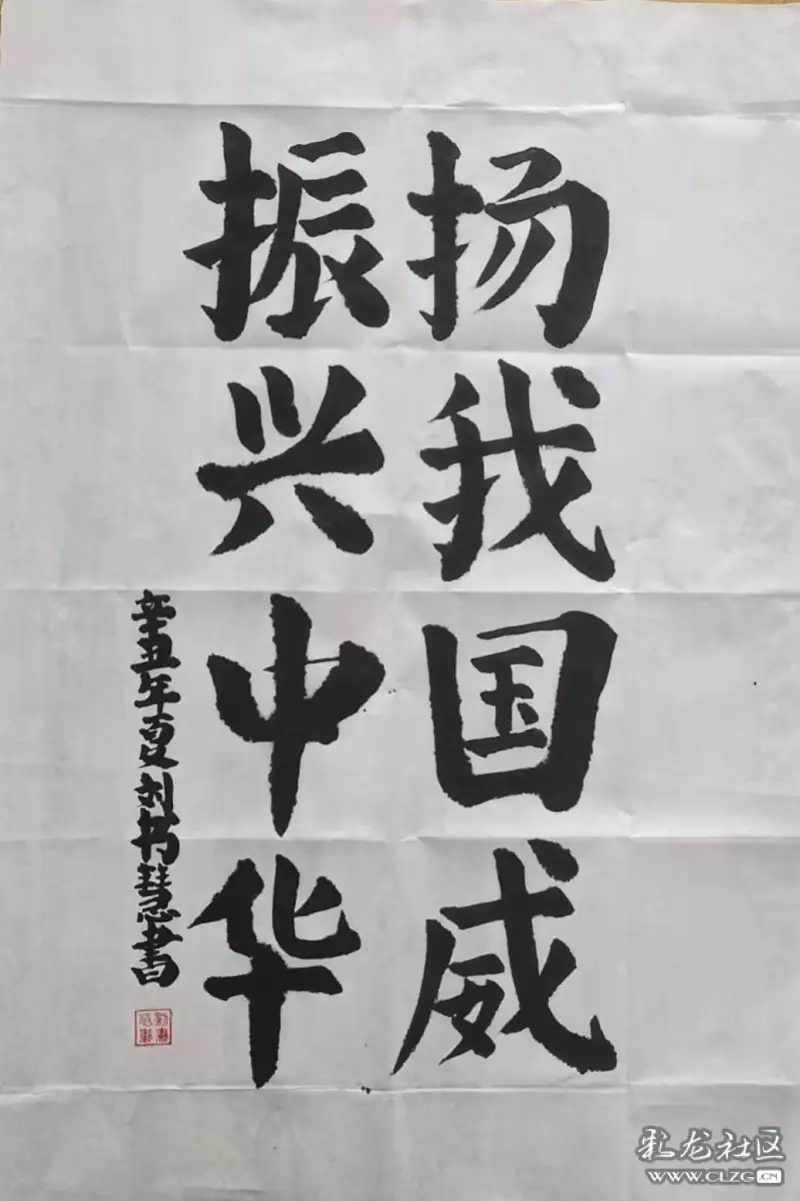 扬我国威
振兴中华
辛丑年夏刘书慧書
彩龙社区
WWW.CLZG.CN